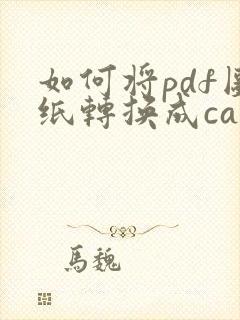 如何将pdf图
纸轉换成ca
馬魏